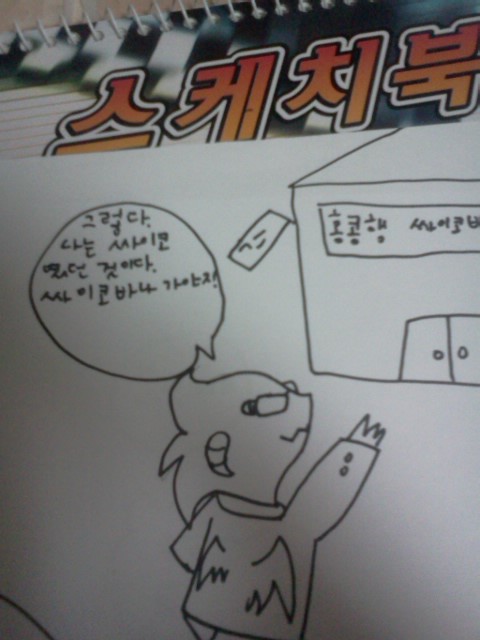 스케치북
그렇다.
나는 싸이코
였던 것이다.
싸이코바나 가야지!
홍콩행 싸이코바